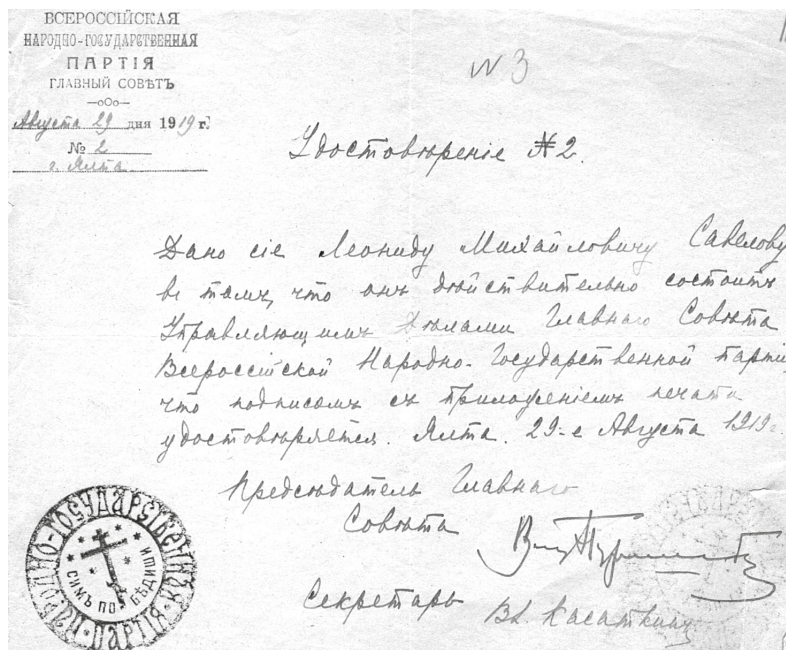 ВСЕРОССІЙСКАЯ
НАРОДНО-ГОСУДАРСТВЕННАЯ
ПАРТІЯ
ГЛАВНЫЙ СОВѢТЪ
—оОо—
Августа 29 дня 1919 г.
№ 2
г. Ялта
N 3
Удостовѣреніе № 2.
Дано сіе Леониду Михайловичу Савелову
въ томъ, что онъ дѣйствительно состоитъ
Управляющимъ Дѣлами Главнаго Совѣта
Всероссійской Народно-Государственной партіи,
что подписомъ съ приложеніемъ печати
удостовѣряется. Ялта. 29-е Августа 1919 г.
Предсѣдатель Главнаго
Совѣта
Секретарь Вл. Касаткинъ
НАРОДНО-ГОСУДАРСТВЕННАЯ ПАРТІЯ
СИМЪ ПОБѢДИШИ